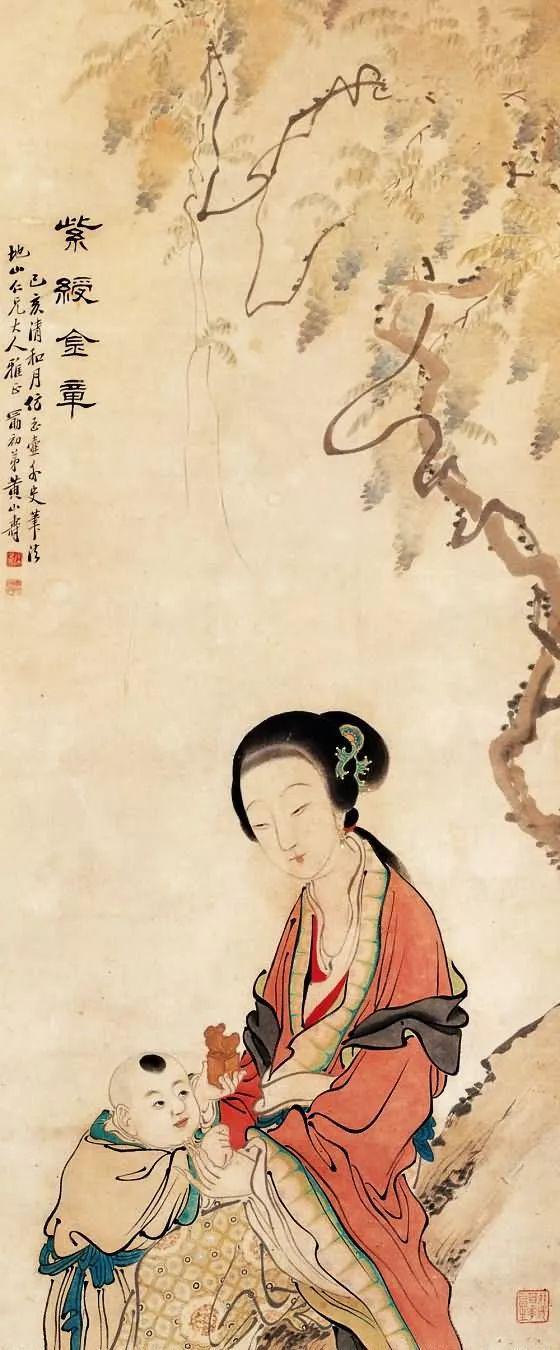 紫綬金章
己亥清和月仿玉壺外史筆法
地山仁兄大人雅正 勗初弟黃山壽